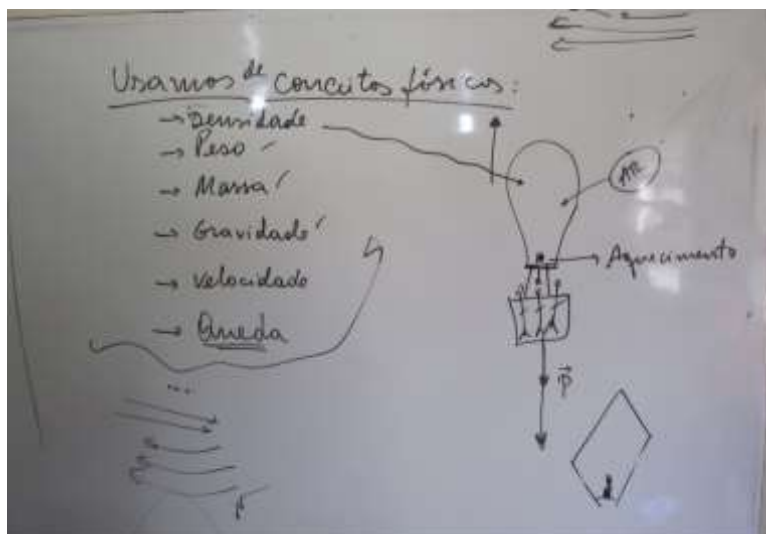 Usamos de conceitos físicos:
→ Densidade
→ Peso
→ Massa
→ Gravidade
→ Velocidade
→ Queda
...
AR
→ Aquecimento
P